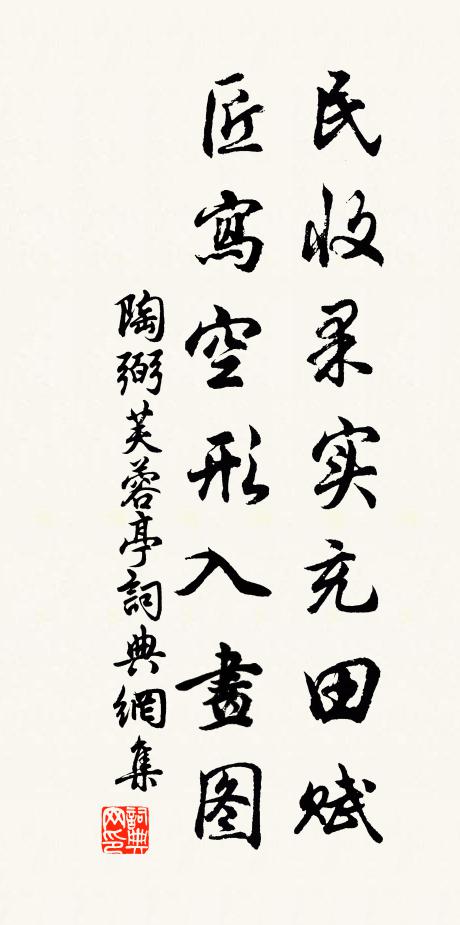 民收果实充田赋
匠寫空形入畫图
陶弼芙蓉亭詞典網集
詞典网印